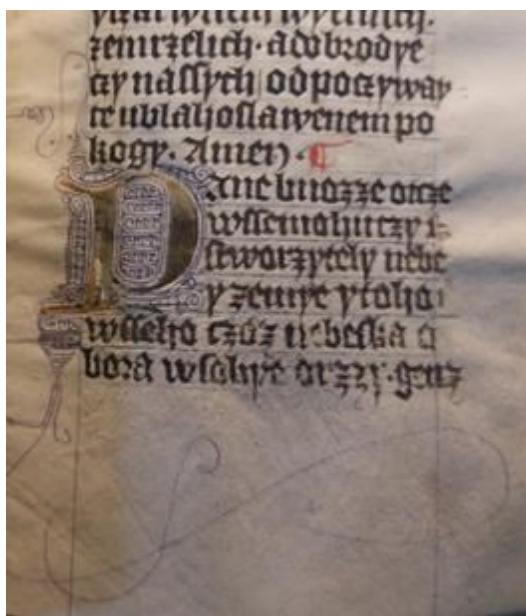 zemrzelich· adobrodye
czy nassych odpoczyway
te ublahoslawenem po
kogy· Amen·
Pane buozze otcze
wssemohuczy
stworzytely nebe
y zemye ytoho
wsseho czoz nebeska o
bora wsobye drzzy·genz